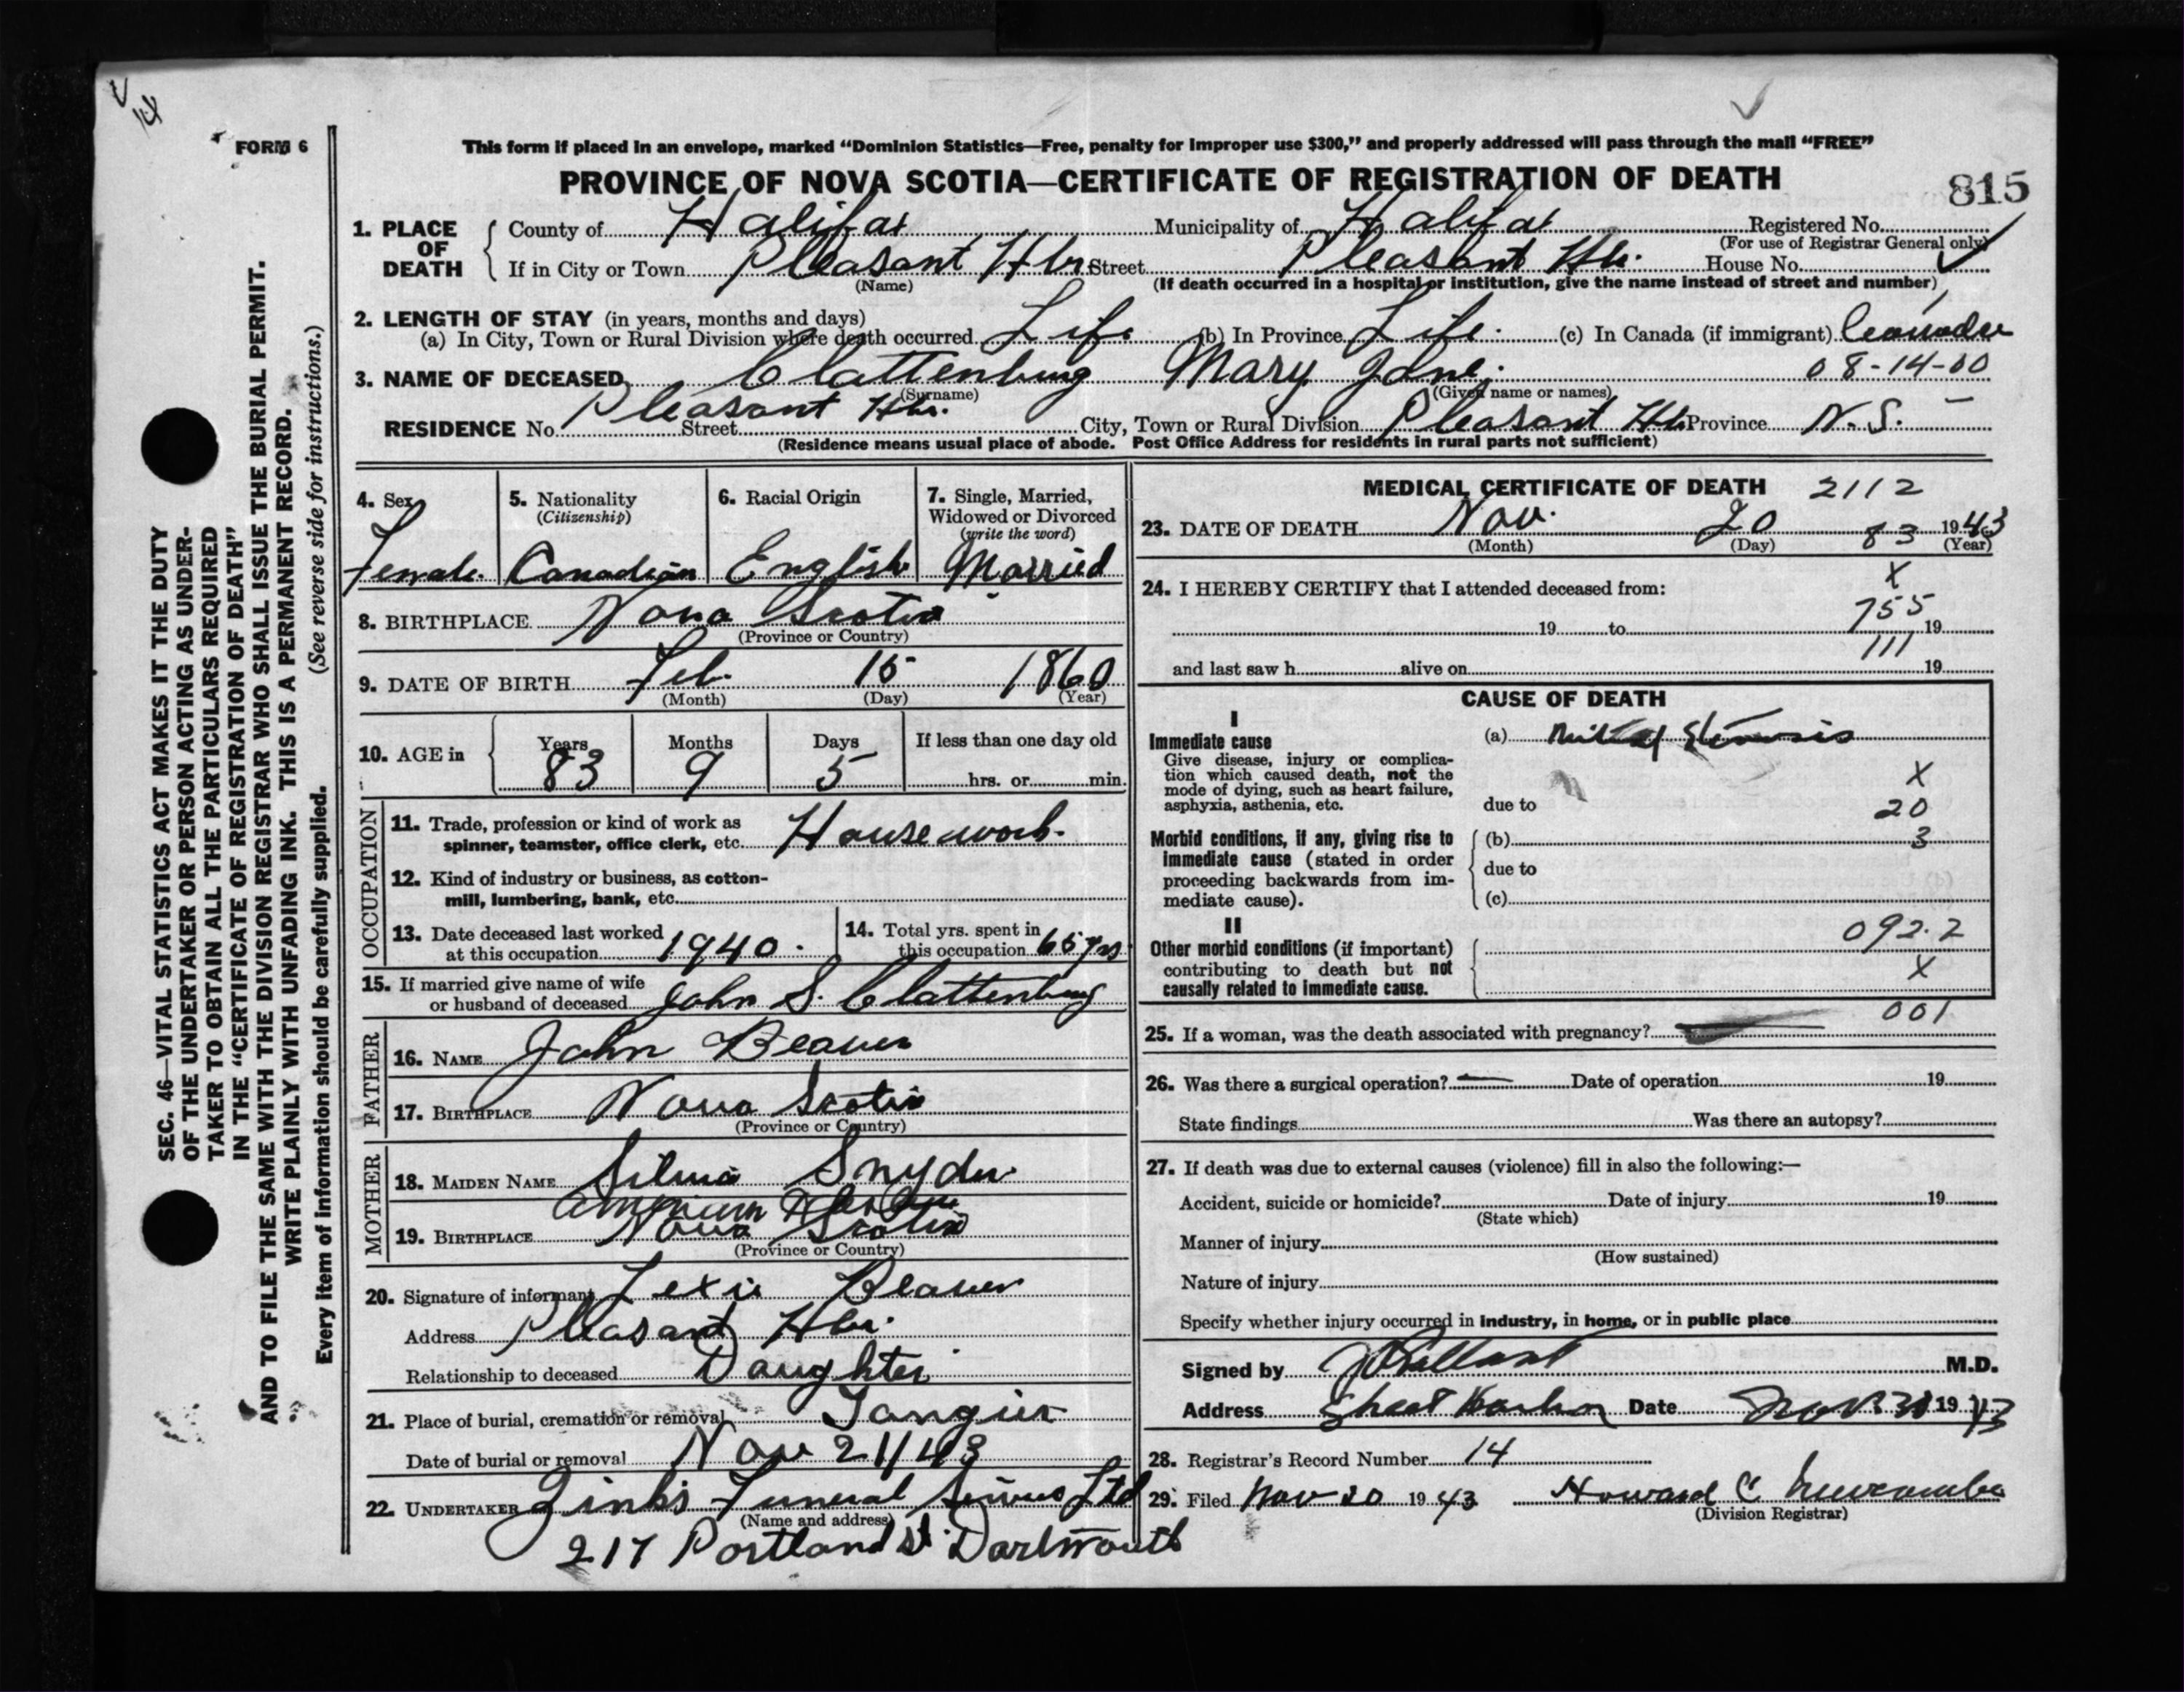 FORM 6
This form if placed in an envelope, marked “Dominion Statistics—Free, penalty for improper use $300,” and properly addressed will pass through the mail “FREE”
PROVINCE OF NOVA SCOTIA—CERTIFICATE OF REGISTRATION OF DEATH
815
1. PLACE OF DEATH
County of Halifax Municipality of Halifax Registered No.
(For use of Registrar General only)
If in City or Town Pleasant Hbr Street Pleasant Hbr. House No.
(Name) (If death occurred in a hospital or institution, give the name instead of street and number)
2. LENGTH OF STAY (in years, months and days)
(a) In City, Town or Rural Division where death occurred Life (b) In Province Life. (c) In Canada (if immigrant)
3. NAME OF DECEASED Clattenburg Mary Jane. 08-14-00
(Surname) (Given name or names)
RESIDENCE No. Pleasant Hbr. Street City, Town or Rural Division Pleasant Hbr Province N.S.
(Residence means usual place of abode. Post Office Address for residents in rural parts not sufficient)
4. Sex
Female.
5. Nationality
(Citizenship)
Canadian
6. Racial Origin
English
7. Single, Married,
Widowed or Divorced
(write the word)
Married
8. BIRTHPLACE Nova Scotia
(Province or Country)
9. DATE OF BIRTH Feb. 15 1860
(Month) (Day) (Year)
10. AGE in Years Months Days If less than one day old
83 9 5 hrs. or min.
OCCUPATION
11. Trade, profession or kind of work as
spinner, teamster, office clerk, etc. Housework.
12. Kind of industry or business, as cotton-
mill, lumbering, bank, etc.
13. Date deceased last worked
at this occupation 1940.
14. Total yrs. spent in
this occupation 65 yrs
15. If married give name of wife
or husband of deceased John S. Clattenburg
FATHER
16. NAME John Beaver
17. BIRTHPLACE Nova Scotia
(Province or Country)
MOTHER
18. MAIDEN NAME Snyder
19. BIRTHPLACE Nova Scotia
(Province or Country)
20. Signature of informant Lexie Beaver
Address Pleasant Hbr.
Relationship to deceased Daughter
21. Place of burial, cremation or removal Tangier
Date of burial or removal Nov 21/43
22. UNDERTAKER Zink's Funeral Service Ltd
(Name and address)
217 Portland St. Dartmouth
MEDICAL CERTIFICATE OF DEATH 2112
23. DATE OF DEATH Nov. 20 1943
(Month) (Day) 83 (Year)
24. I HEREBY CERTIFY that I attended deceased from: X
19 to 755 19
111
and last saw h alive on 19
CAUSE OF DEATH
I
Immediate cause
Give disease, injury or complica-
tion which caused death, not the
mode of dying, such as heart failure,
asphyxia, asthenia, etc.
(a) Mitral Stenosis
X
due to 20
Morbid conditions, if any, giving rise to
immediate cause (stated in order
proceeding backwards from im-
mediate cause).
(b) 3
due to
(c)
II
Other morbid conditions (if important)
contributing to death but not
causally related to immediate cause.
092.2
X
001
25. If a woman, was the death associated with pregnancy?
26. Was there a surgical operation? — Date of operation 19
State findings Was there an autopsy?
27. If death was due to external causes (violence) fill in also the following:—
Accident, suicide or homicide? Date of injury 19
(State which)
Manner of injury
(How sustained)
Nature of injury
Specify whether injury occurred in industry, in home, or in public place
Signed by M.D.
Address Sheet Harbor Date Nov 19 43
28. Registrar's Record Number 14
29. Filed Nov 20 1943 Howard C Newcombe
(Division Registrar)
SEC. 46—VITAL STATISTICS ACT MAKES IT THE DUTY
OF THE UNDERTAKER OR PERSON ACTING AS UNDER-
TAKER TO OBTAIN ALL THE PARTICULARS REQUIRED
IN THE “CERTIFICATE OF REGISTRATION OF DEATH”
AND TO FILE THE SAME WITH THE DIVISION REGISTRAR WHO SHALL ISSUE THE BURIAL PERMIT.
WRITE PLAINLY WITH UNFADING INK. THIS IS A PERMANENT RECORD.
Every item of information should be carefully supplied. (See reverse side for instructions.)